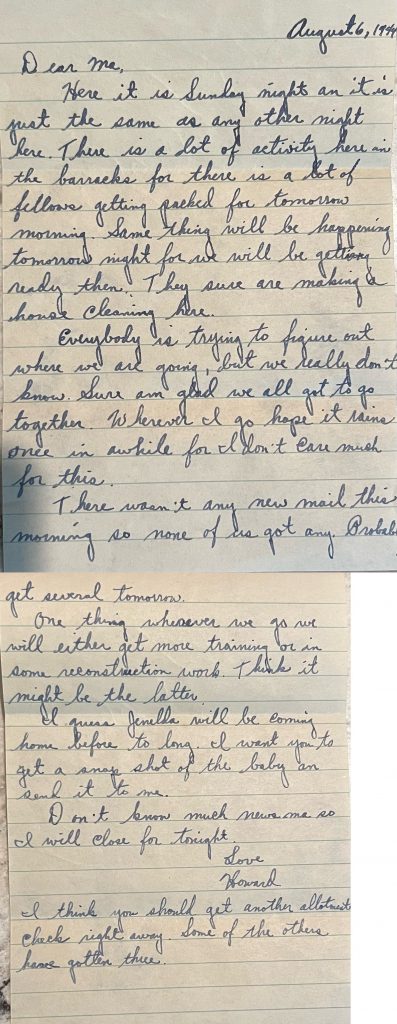 August 6, 1944
Dear Ma,
Here it is Sunday night an it is
just the same as any other night
here. There is a lot of activity here in
the barracks for there is a lot of
fellows getting packed for tomorrow
morning Same thing will be happening
tomorrow night for we will be getting
ready then. They sure are making a
house cleaning here.
Everybody is trying to figure out
where we are going, but we really don't
know. Sure am glad we all got to go
together. Wherever I go hope it rains
once in awhile for I don't care much
for this.
There wasn't any new mail this
morning so none of us got any. Probab
get several tomorrow.
One thing wherever we go we
will either get more training or in
some reconstruction work. Think it
might be the latter.
I guess Jenelda will be coming
home before to long. I want you to
get a snap shot of the baby an
send it to me.
Don't know much news ma so
I will close for tonight.
Love
Howard
I think you should get another allotment
check right away. Some of the others
have gotten three.